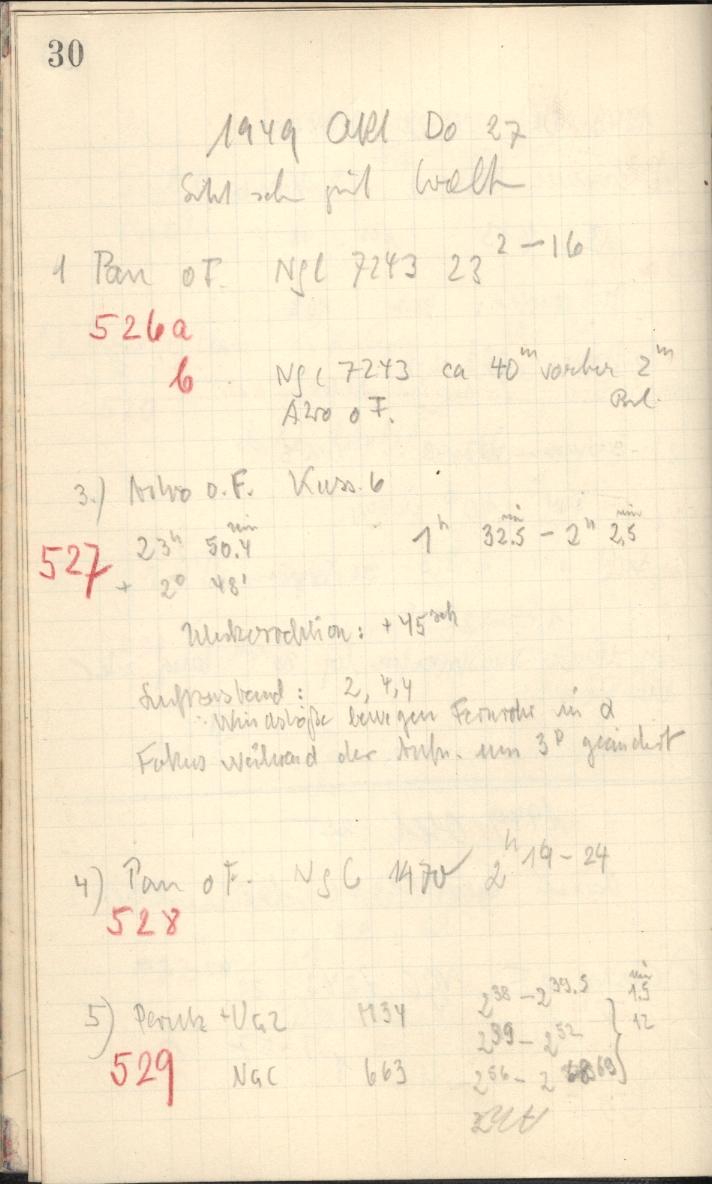 30
1949 Okt Do 27
sehr gut
1 Pan o F. NgC 7243 23 2 – 16
526a
b NgC 7243 ca 40m vorher 2m
o F.
3.) Astro o.F. Kuss. 6
23h 50.4 min 1h 32.5 min – 2h 2,5 min
527
+ 2° 48'
Uhrkorrektion: + 45 sek
Luftzustand: 2, 4, 4
Windstöße bewegen Fernrohr in α
Fokus während der Aufn. um 3p geändert
4) Pan o F. NgC 2h 19 – 24
528
5) Perutz + UG2 M34 2 38 – 2 39.5 min 1.5
2 39 – 2 52 12
529 NGC 663 2 56 – 2